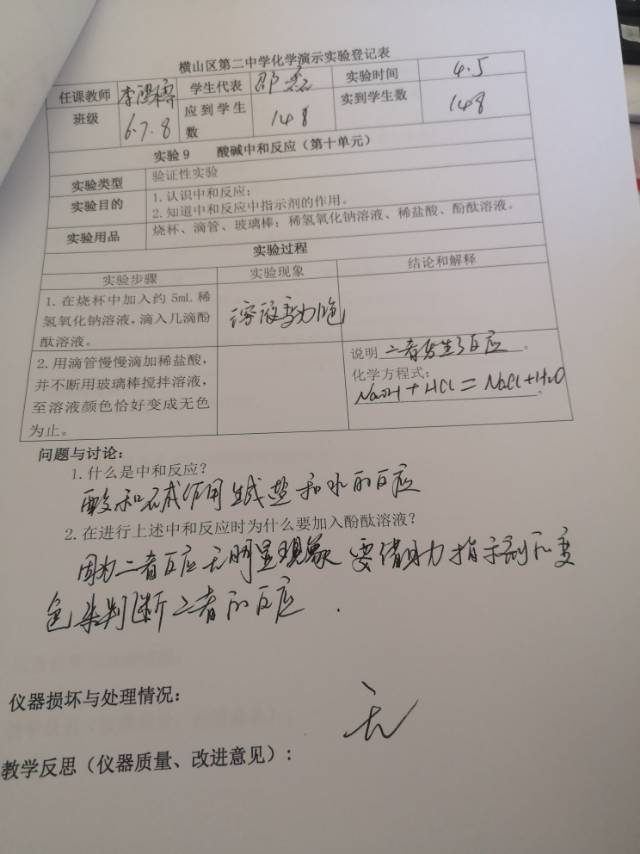 横山区第二中学化学演示实验登记表
任课教师 学生代表 实验时间 4.5
班级 6.7.8 应到学生数 148 实到学生数 148
实验9 酸碱中和反应（第十单元）
实验类型 验证性实验
实验目的 1.认识中和反应；
2.知道中和反应中指示剂的作用。
实验用品 烧杯、滴管、玻璃棒；稀氢氧化钠溶液、稀盐酸、酚酞溶液。
实验过程
实验步骤 实验现象 结论和解释
1.在烧杯中加入约 5mL 稀
氢氧化钠溶液，滴入几滴酚
酞溶液。
溶液变为红色
2.用滴管慢慢滴加稀盐酸，
并不断用玻璃棒搅拌溶液，
至溶液颜色恰好变成无色
为止。
说明 二者发生了反应 。
化学方程式：
NaOH + HCl = NaCl + H2O 。
问题与讨论：
1.什么是中和反应？
酸和碱作用生成盐和水的反应
2.在进行上述中和反应时为什么要加入酚酞溶液？
因为二者反应无明显现象 要借助力指示剂的变
色来判断二者的反应 .
仪器损坏与处理情况：
无
教学反思（仪器质量、改进意见）：